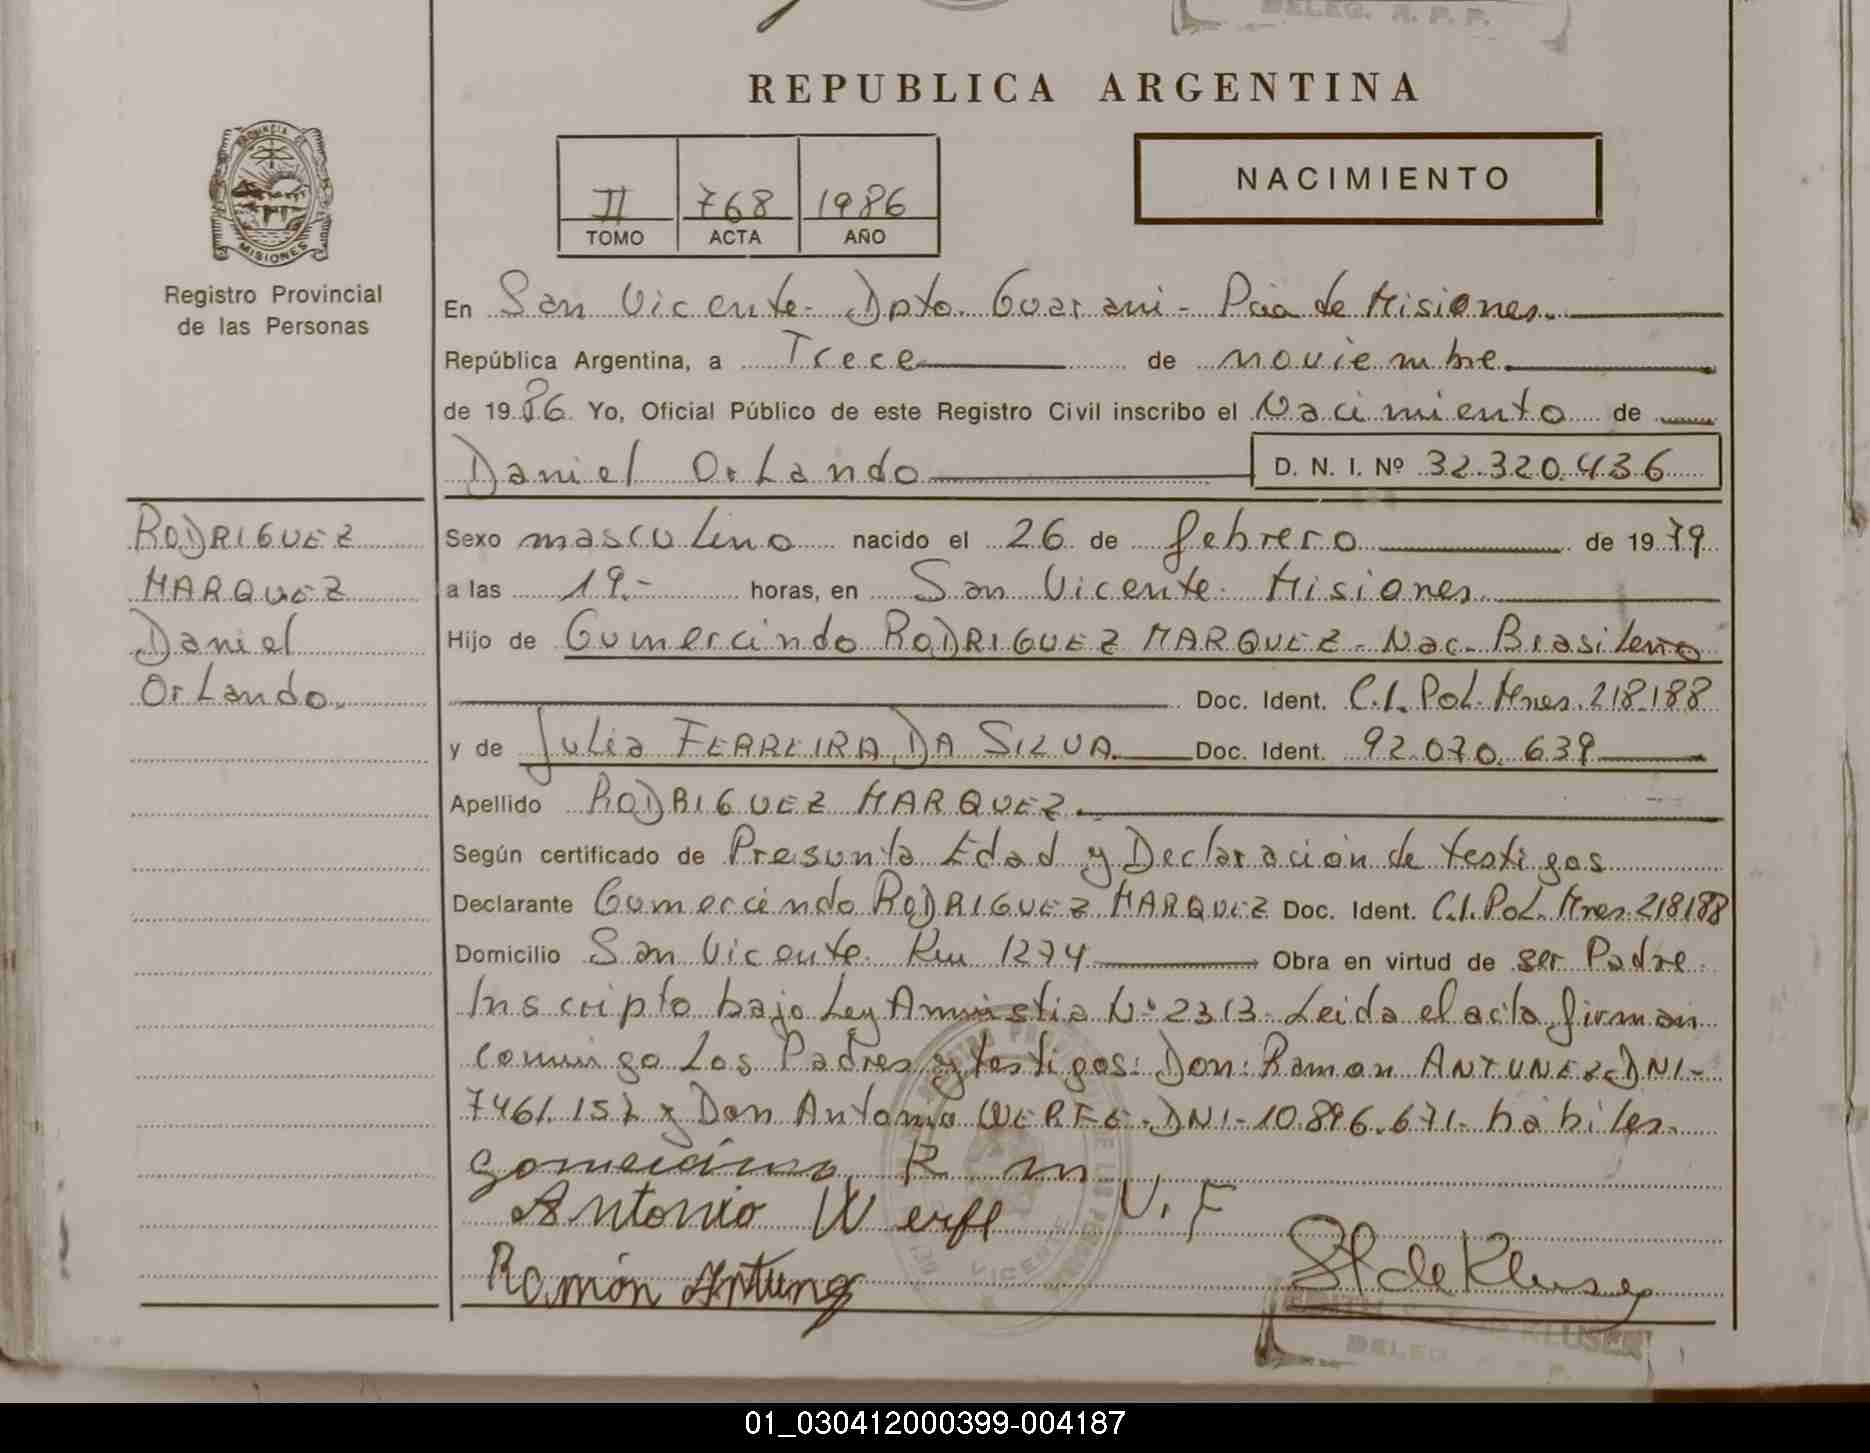 DELEG. R. P. P.
REPUBLICA ARGENTINA
PROVINCIA DE
MISIONES
II 768 1986
TOMO ACTA AÑO
NACIMIENTO
Registro Provincial
de las Personas
En San Vicente - Dpto. Guarani - Pcia de Misiones.
República Argentina, a Trece de noviembre
de 1986 Yo, Oficial Público de este Registro Civil inscribo el Nacimiento de
Daniel Orlando D. N. I. Nº 32.320.436
RODRIGUEZ
MARQUEZ
Daniel
Orlando.
Sexo masculino nacido el 26 de febrero de 1979
a las 19.- horas, en San Vicente - Misiones
Hijo de Gumercindo RODRIGUEZ MARQUEZ - Nac. Brasilero
Doc. Ident. C.I. Pol. Mnes. 218.188
y de Julia FERREIRA DA SILVA Doc. Ident. 92.070.639
Apellido RODRIGUEZ MARQUEZ.
Según certificado de Presunta Edad y Declaración de testigos
Declarante Gumercindo RODRIGUEZ MARQUEZ Doc. Ident. C.I. Pol. Mnes. 218188
Domicilio San Vicente. Km 1274 Obra en virtud de ser Padre.
Inscripto bajo Ley Amnistia Nº 2313. Leida el acta firman
comigo los Padres y testigos: Don: Ramon ANTUNEZ DNI-
7461.152 y Don Antonio WERFE. DNI- 10.896.671- hábiles.
Gomercindo R m
Antonio Werfl V. F
Ramón Antunez
St de Kluser
KLUSER
DELEG. R. P. P.
01_030412000399-004187